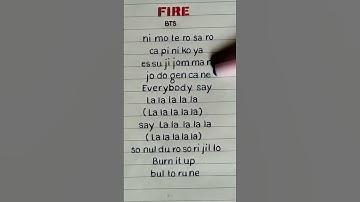 FIRE
BTS
ni mo te ro sa ro
ca pi ni ko ya
es su ji jom ma
jo do gen ca ne
Everybody say
La la la la la
(La la la la la)
say La la la la la
(La la la la la)
so nul du ro so ri jil lo
Burn it up
bul to ru ne